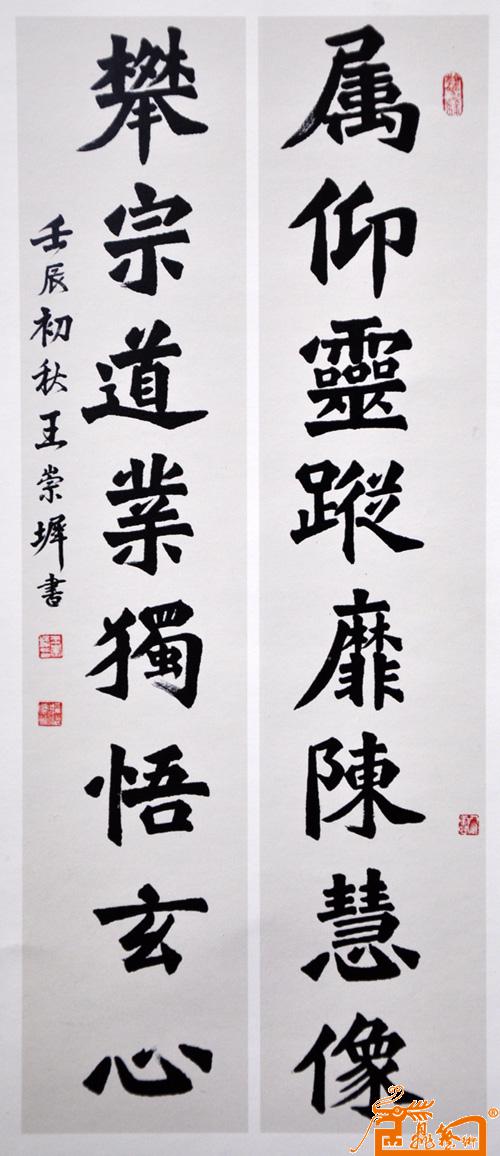 属仰靈蹤靡陳慧像
攀宗道業獨悟玄心
壬辰初秋王崇墀书